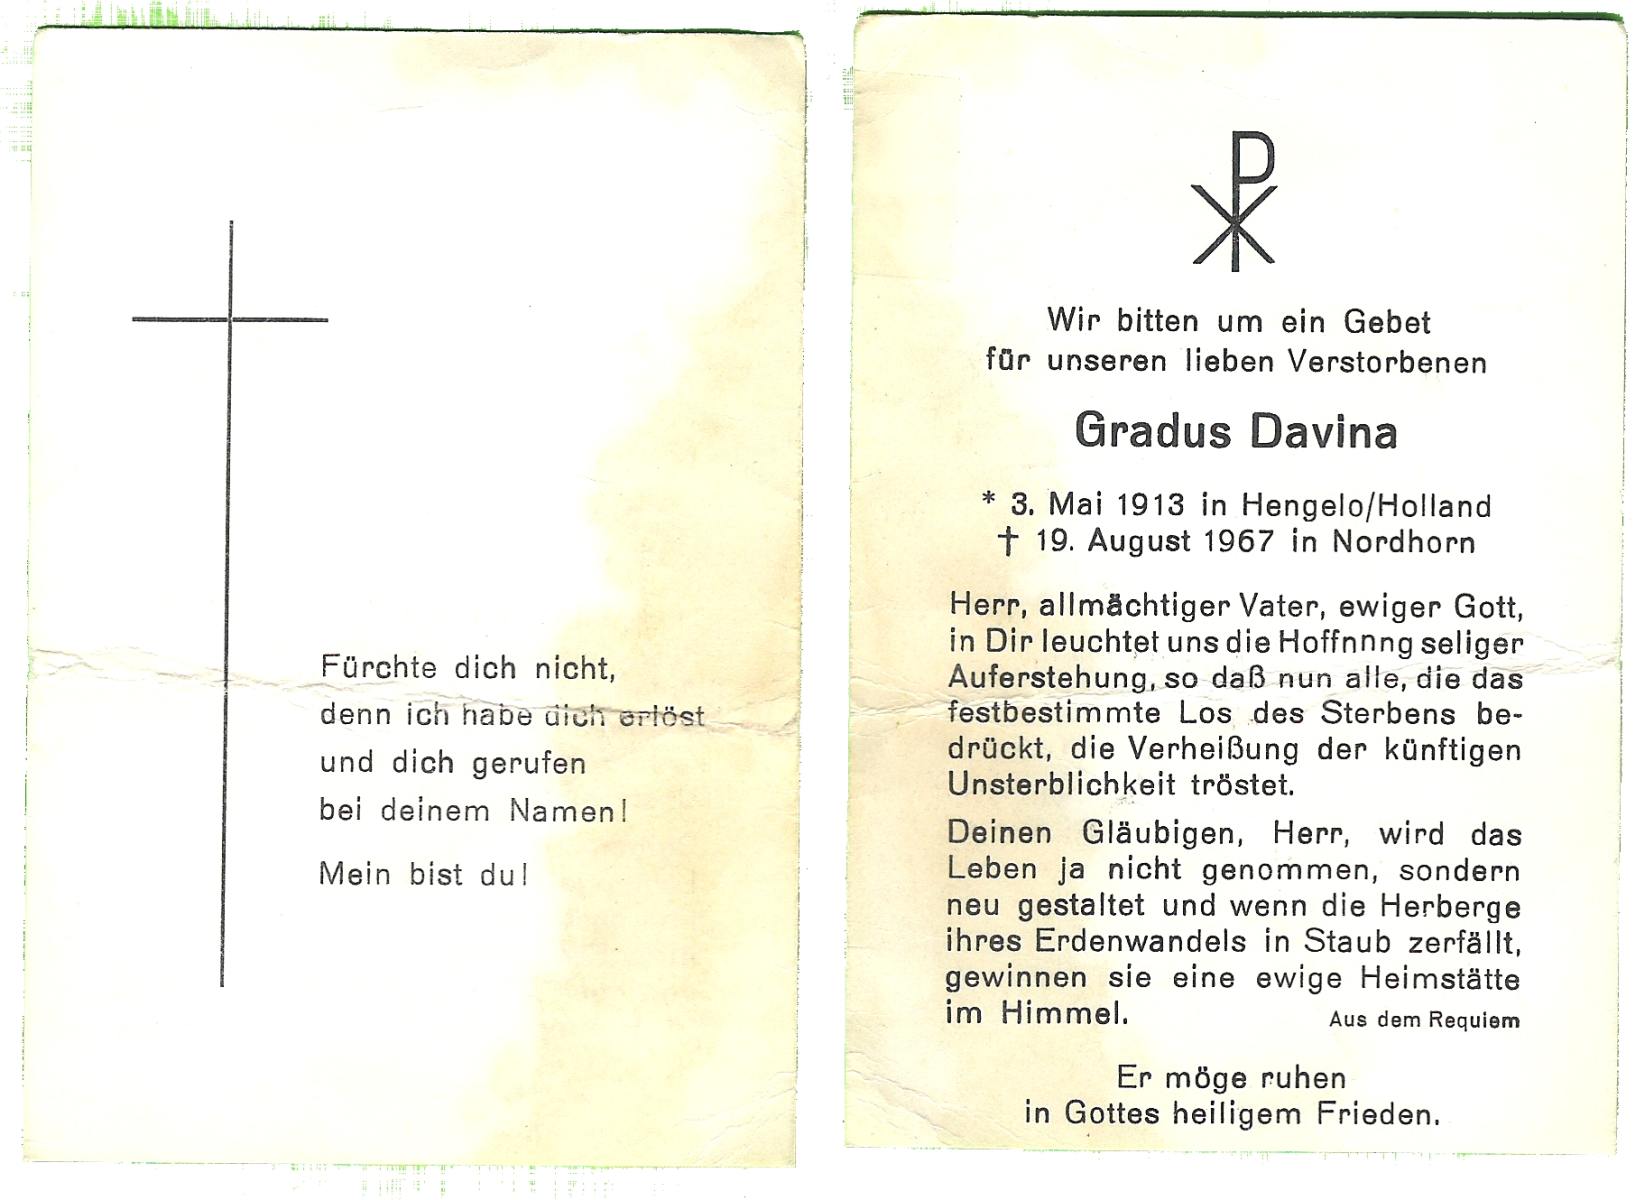 Fürchte dich nicht,
denn ich habe dich erlöst
und dich gerufen
bei deinem Namen!
Mein bist du!
Wir bitten um ein Gebet
für unseren lieben Verstorbenen
Gradus Davina
* 3. Mai 1913 in Hengelo/Holland
† 19. August 1967 in Nordhorn
Herr, allmächtiger Vater, ewiger Gott,
in Dir leuchtet uns die Hoffnnng seliger
Auferstehung, so daß nun alle, die das
festbestimmte Los des Sterbens be-
drückt, die Verheißung der künftigen
Unsterblichkeit tröstet.
Deinen Gläubigen, Herr, wird das
Leben ja nicht genommen, sondern
neu gestaltet und wenn die Herberge
ihres Erdenwandels in Staub zerfällt,
gewinnen sie eine ewige Heimstätte
im Himmel. Aus dem Requiem
Er möge ruhen
in Gottes heiligem Frieden.